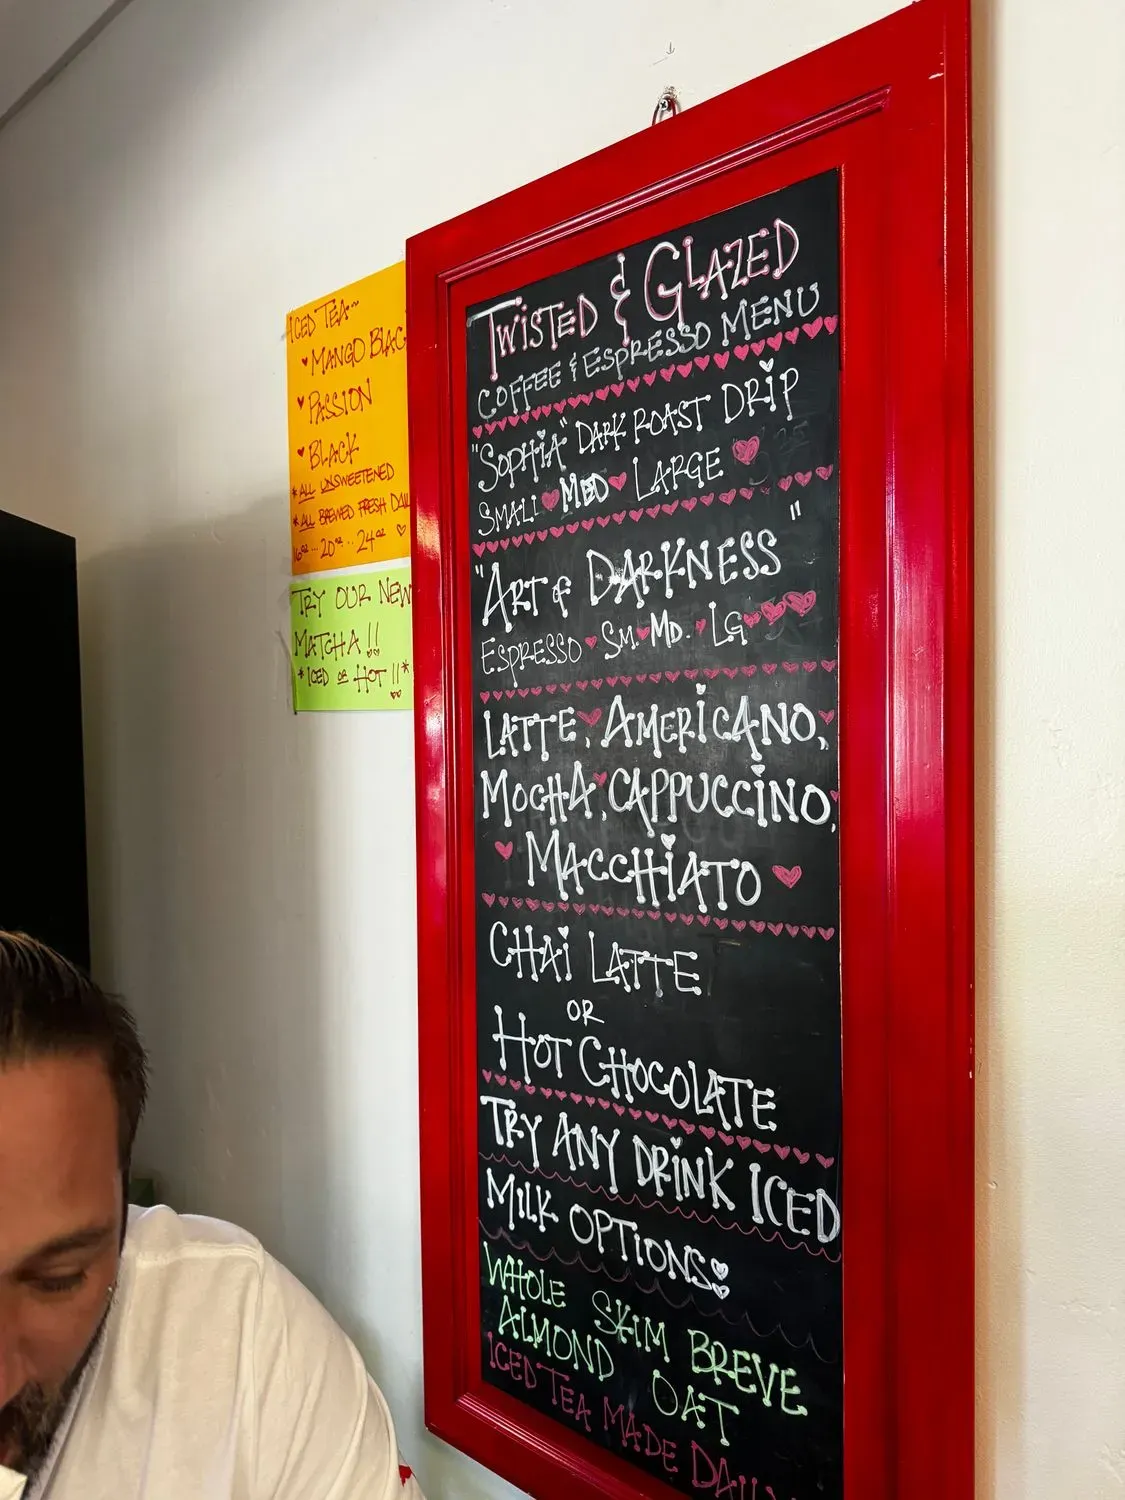 ICED TEA~
MANGO BLAC
PASSION
BLACK
*ALL UNSWEETENED
*ALL BREWED FRESH DAI
16oz... 20oz.. 24oz
TRY OUR NEW
MATCHA!!
*ICED OR HOT!!*
TWISTED & GLAZED
COFFEE & ESPRESSO MENU
"SOPHIA" DARK ROAST DRIP
SMALL MED LARGE
"ART of DARKNESS"
ESPRESSO SM. MD. LG
LATTE, AMERICANO,
MOCHA, CAPPUCCINO,
MACCHIATO
CHAI LATTE
OR
HOT CHOCOLATE
TRY ANY DRINK ICED
MILK OPTIONS:
WHOLE SKIM BREVE
ALMOND OAT
ICED TEA MADE DAILY